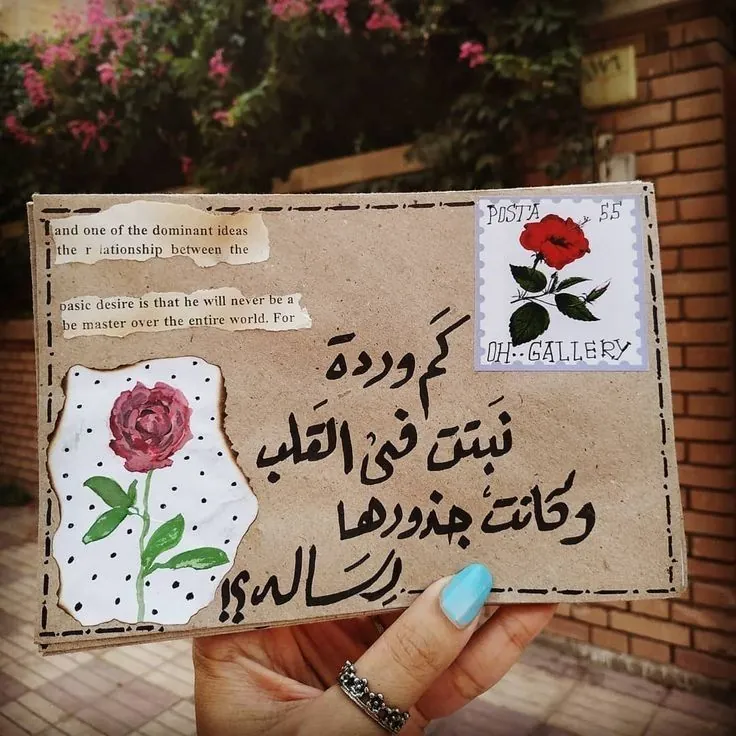 and one of the dominant ideas
the r lationship between the
basic desire is that he will never be a
be master over the entire world. For
POSTA 55
OH.. GALLERY
كَم وردة
نَبتت في القَلب
وكَانت جذورها
رِسَالة؟!